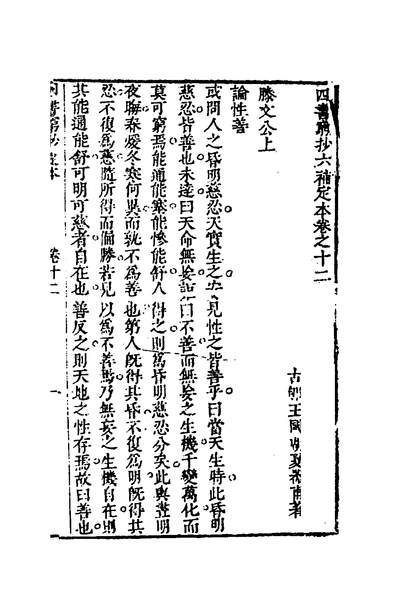 四書窮抄六補定本卷之十二
古 王國瑚夏器甫著
滕文公上
論性善
或問人之昏明慈忍天實生之 見性之皆善乎曰當天生時此昏明
慈忍皆善也未達曰天命無妄 曰不善而無妄之生機千變萬化而
莫可窮焉能通能塞能慘能舒人得之則爲昏明慈忍分矣此與晝明
夜晦春煖冬寒何異而孰不爲善也第人旣得其昏不復爲明旣得其
忍不復爲慈隨所得而偏勝若見以爲不善焉乃無妄之生機自在則
其能通能舒可明可慈者自在也善反之則天地之性存焉故曰善也
四書窮抄 定本
卷十二
一